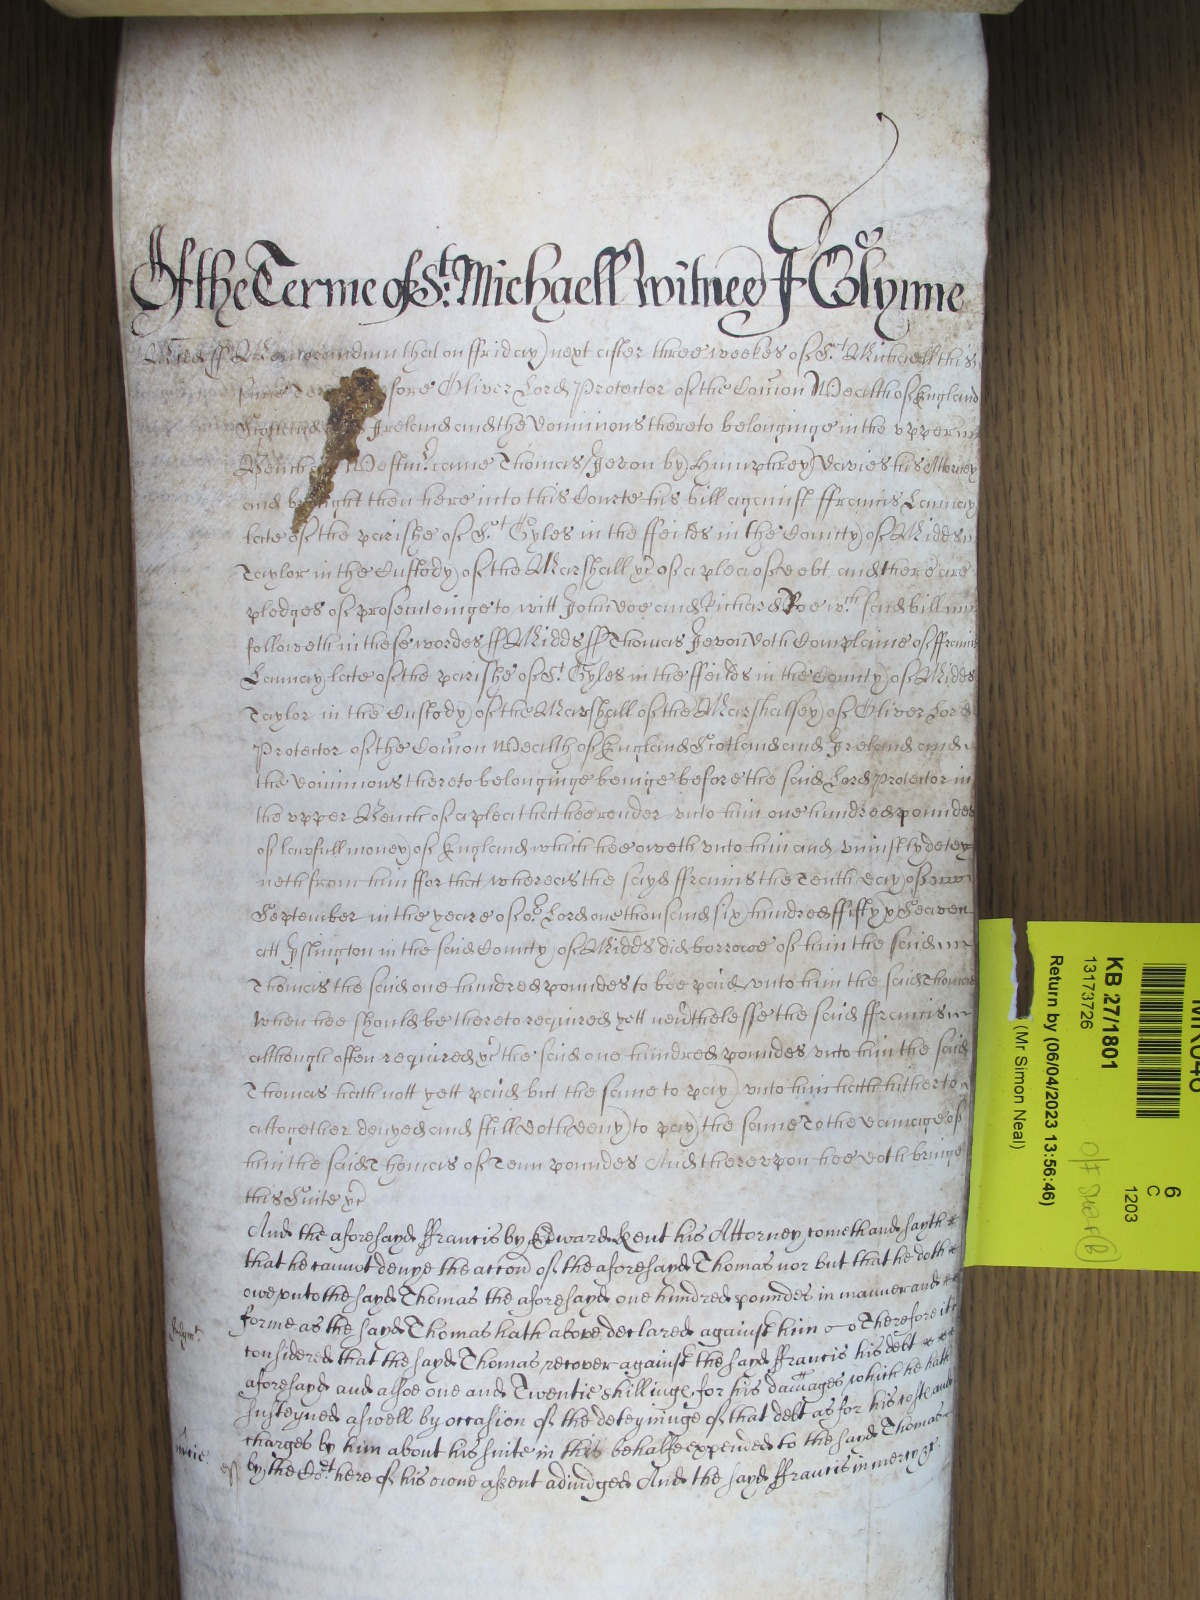 Of the Terme of St. Michaell Witnes J Glynne
Midd ss Memorandum that on ffriday next after three weekes of St Michaell this
same Ter fore Oliver Lord Protector of the Com̄on Wealth of England
Scotland Ireland and the Dominions thereto belonginge in the upper
Bench Westmr. came Thomas Jevon by Humphrey Davies his Attorney
and b ught then here into this Courte his bill against ffrancis Launay
late of the parishe of St Gyles in the ffeilds in the County of Midds
Taylor in the Custody of the Marshall &c of a plea of debt and there are
pledges of prosecuteinge to witt John Doe and Richard Roe wch. said bill
followeth in these wordes ss Midds ss Thomas Jevon doth Complaine of ffrancis
Launay late of the parishe of St. Gyles in the ffeilds in the County of Midds
Taylor in the Custody of the Marshall of the Marshalsey of Oliver Lord
Protector of the Com̄on Wealth of England Scotland and Ireland and
the Dominions thereto belonginge beinge before the said Lord Protector in
the upper Bench of a plea that hee render unto him one hundred poundes
of lawfull money of England which hee oweth unto him and uniustly detey
neth from him ffor that whereas the sayd ffrancis the Tenth day of
September in the yeare of or. Lord one thousand six hundred ffifty & Seaven
att Yslington in the said County of Midds did borrowe of him the said
Thomas the said one hundred poundes to bee paid unto him the said Thomas
when hee should be thereto required yett nev'thelesse the said ffrancis
although often required &c the said one hundred poundes unto him the said
Thomas hath nott yett paid but the same to pay unto him hath hitherto
altogether denyed and still doth deny to pay the same To the damage of
him the said Thomas of Tenn poundes And thereupon hee doth bringe
this Suite &c
And the aforesayd ffrancis by Edward Kent his Attorney cometh and sayth
that he cannot denye the accon̄ of the aforesayd Thomas nor but that he doth
owe unto the sayd Thomas the aforesayd one hundred poundes in manner and
forme as the sayd Thomas hath above declared against him Therefore it is
Judgmt.
considered that the sayd Thomas recover against the sayd ffrancis his debt
aforesayd and alsoe one and Twentie shillinge for his dam̄ages which he hath
susteyned aswell by occasion of the deteyninge of that debt as for his costs and
charges by him about his suite in this behalfe expended to the sayd Thomas
by the Cort. here of his owne assent adiudged And the sayd ffrancis in mercy &c.
KB 27/1801
13173726
Return by (06/04/2023 13:56:46)
(Mr Simon Neal)
6
C
1203